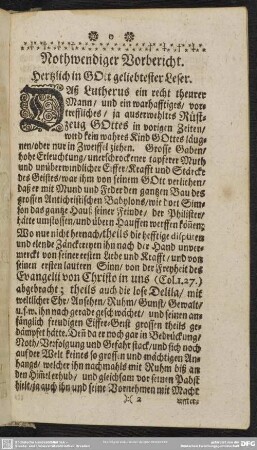 Nothwendiger Vorbericht.
Hertzlich in GOtt geliebtester Leser.
DAß Lutherus ein recht theurer
Mann/ und ein warhafftiges/ vor-
treffliches/ ja auserwehltes Rüst-
zeug GOttes in vorigen Zeiten/
wird kein wahres Kind GOttes läug-
nen/ oder nur in Zweiffel ziehen. Grosse Gaben/
hohe Erleuchtung/ unerschrockener tapfferer Muth
und unüberwindlicher Eiffer/ Krafft und Stärcke
des Geistes/ war ihm von seinem GOtt verliehen/
daß er mit Mund und Feder den gantzen Bau des
grossen Antichristischen Babylons/ wie dort Sim-
son das gantze Hauß seiner Feinde/ der Philister/
hätte umstossen/ und übern Hauffen werffen können;
Wo nur nicht hernach/ theils die hefftige disputen
und elende Zänckereyen ihn nach der Hand unver-
merckt von seiner ersten Liebe und Krafft/ und von
seinen ersten lautern Sinn/ von der Freyheit des
Evangelii von Christo in uns (Col. 1, 27.)
abgebracht; theils auch die lose Delila/ mit
weltlicher Ehr/ Ansehen/ Ruhm/ Gunst/ Gewalt/
u.s.w. ihn nach gerade geschwächet/ und seinen an-
fänglich freudigen Eiffer-Geist grossen theils ge-
dämpfet hätte. Den da er noch gar in Bedruckung/
Noth/ Verfolgung und Gefahr stack/ und sich noch
auf der Welt keines so grossen und mächtigen An-
hangs/ welcher ihn nachmahls mit Ruhm biß an
den Himel erhub/ und gleichsam vor seinen Pabst
hielt/ ja auch ihn und seine Vornehmen mit Macht
)( 2